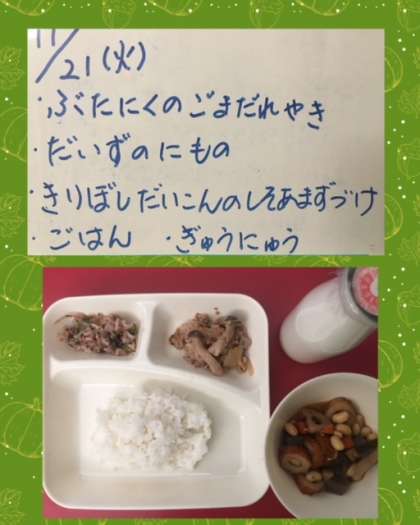 11/21(火)
・ぶたにくのごまだれやき
・だいずのにもの
・きりぼしだいこんのしそあまずづけ
・ごはん ・ぎゅうにゅう